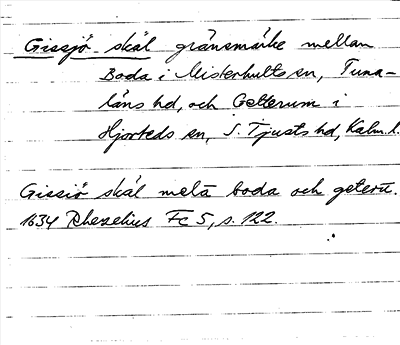 Gissjö skäl gränsmärke mellan
Boda i Misterhults sn, Tuna-
läns hd, och Getterum i
Hjorteds sn, S. Tjusts hd, Kalm. l.
Gissiö skäl melā boda och geterū.
1634 Rhezelius Fc 5, s. 122.